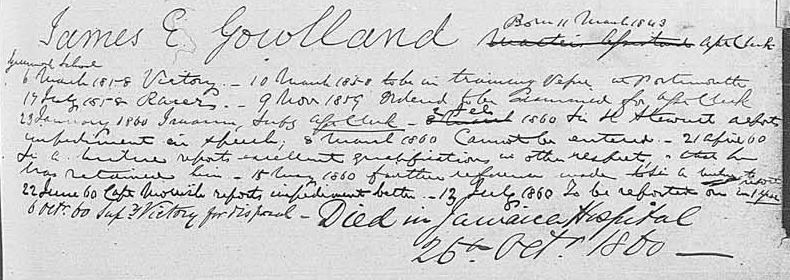 Born 11 March 1843
James E Gowlland Master's Assistant Asst Clerk
Greenwich School
6 March 1858 Victory. - 10 March 1858 to be in training Vessel at Portsmouth
17 July 1858 Racers. - 9 Nov 1859 Ordered to be Examined for Asst Clerk
2 Feb
23 January 1860 Supy Asst Clerk - 8 March 1860 Sir H Stewart reports
impediment in speech; 8 March 1860 Cannot be entered - 21 April 60
Sir A reports excellent qualifications in other respects, & that he
has retained him - 18 May 1860 further reference made to Sir A
22 June 60 Capt reports impediment better. - 13 July 1860 To be reported on in 1 year
6 Oct. 60 Supy Victory for disposal - Died in Jamaica Hospital
26th Octr. 1860 -